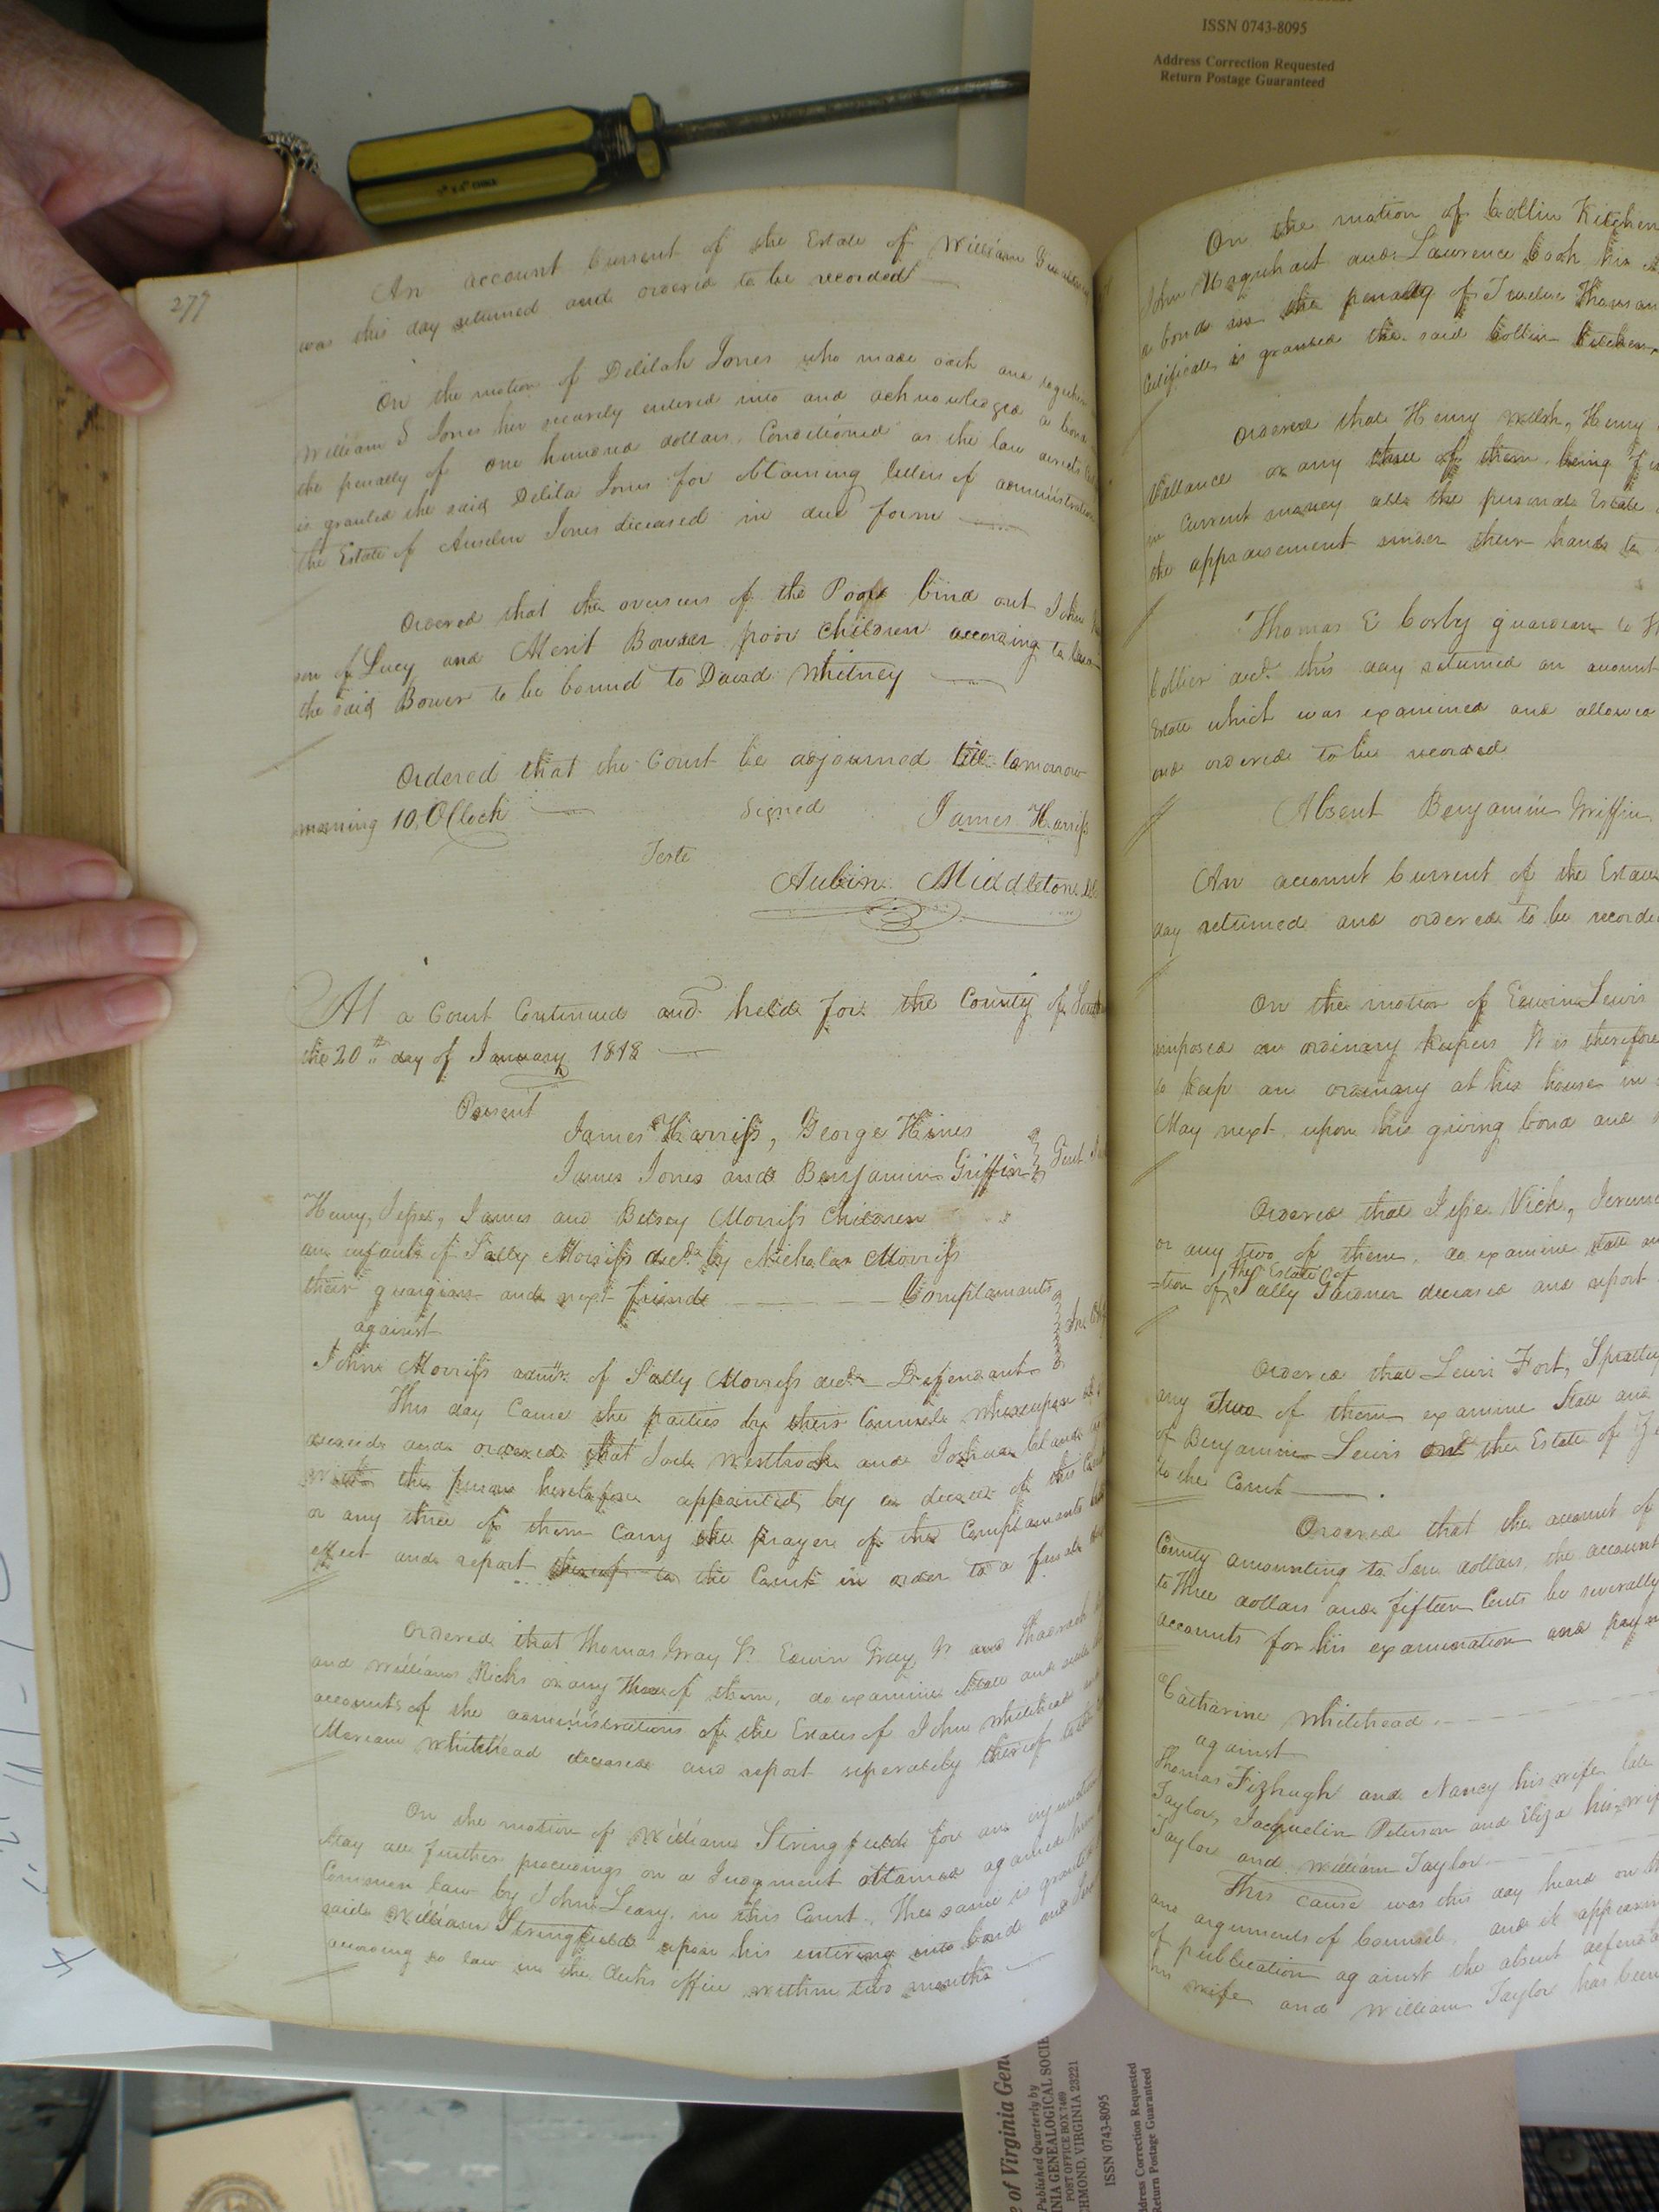 ISSN 0743-8095
Address Correction Requested
Return Postage Guaranteed
277
An account Current of the Estate of William
was this day returned and ordered to be recorded
On the motion of Delilah Jones who made oath and together
William S Jones her security entered into and acknowledged a bond
the penalty of one hundred dollars, Conditioned as the law directs
is granted the said Delila Jones for obtaining letters of administration
the Estate of Anselm Jones diceased in due form
Ordered that the overseers of the Poor bind out John
son of Lucy and Merit Bowzer poor Children according to law
the said Bower to be bound to David Whitney
Ordered that the Court be adjourned till tomorrow
morning 10, OClock
Signed
James Harriss
Teste
Aubin Middleton
At a Court Continued and held for the County of
the 20th day of January 1818
Present
James Harriss, George Hines
James Jones and Benjamin Griffin
Gent
Henry, Jesse, James and Betsey Morriss Children
and infants of Sally Morriss decd. by Nicholas Morriss
their guardian and next friend Complainants
against
John Morriss admr. of Sally Morriss decd. Defendant
This day Came the parties by their Counsel whereupon
decreed and ordered that Joel Westbrook and Joshua
with the persons heretofore appointed by a decree of this Court
or any three of them Carry the prayer of the Complainants
effect and report thereof to the Court in order to a final
Ordered that Thomas Gray Sr. Edwin Gray, Jr and
and William Ricks or any Three of them, do examine State and
accounts of the administrations of the Estates of John Whitehead
Meream Whitehead deceased and report seperately thereof
On the motion of William Stringfield for an injunction
stay all further proceedings on a Judgment obtained against him
Common law by John Leary, in this Court, The same is granted
said William Stringfield upon his entering into bond and
according to law in the Clerks office within two months
On the motion of Collin Kitchen
John Urquhart and Lawrence Cook his
a bond in the penalty of Twelve Thousand
Certificate is granted the said Collin Kitchen
Ordered that Henry Welsh, Henry
Vallance or any three of them, being
in Current money all the personal Estate
the appraisement under their hands to
Thomas E Cosby guardian to
Collier decd. this day returned an account
Estate which was examined and allowed
and ordered to be recorded
Absent Benjamin Griffin
An account Current of the Estate
day returned and ordered to be recorded
On the motion of Edwin Lewis
imposed on ordinary keepers It is therefore
to keep an ordinary at his house in
May next, upon his giving bond and
Ordered that Jesse Vick,
or any two of them, do examine, state and
the Estate of
=tion of Sally Gardner deceased and report
Ordered that Lewis Fort, Spratley
any Two of them examine State and
of Benjamin Lewis on the Estate of
to the Court
Ordered that the account of
County amounting to Ten dollars, the account
to Three dollars and fifteen Cents be severally
accounts for his examination and
Catharine Whitehead
against
Thomas Fizhugh and Nancy his wife late
Taylor, Jacquelin Peterson and Eliza his wife
Taylor and William Taylor
This Cause was this day heard on
and arguments of Counsel, and it appearing
of publication against the absent defendants
his wife and William Taylor has been
e of Virginia Gene
Published Quarterly by
INIA GENEALOGICAL SOCIE
POST OFFICE BOX 7469
CHMOND, VIRGINIA 23221
ISSN 0743-8095
ddress Correction Requested
Return Postage Guaranteed